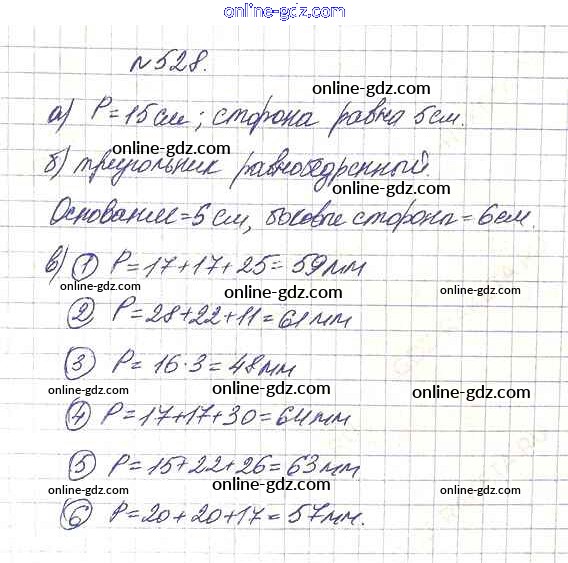 online-gdz.com
№528.
online-gdz.com
а) P=15см; сторона равна 5см.
online-gdz.com
б) треугольник равнобедренный.
online-gdz.com online-gdz.com
Основание=5см, боковые стороны=6см.
online-gdz.com
в) 1 P=17+17+25=59мм
online-gdz.com online-gdz.com
2 P=28+22+11=61мм
online-gdz.com
3 P=16·3=48мм
online-gdz.com online-gdz.com online-gdz.com
4 P=17+17+30=64мм
online-gdz.com
5 P=15+22+26=63мм
online-gdz.com online-gdz.com online-gdz.com
6 P=20+20+17=57мм.